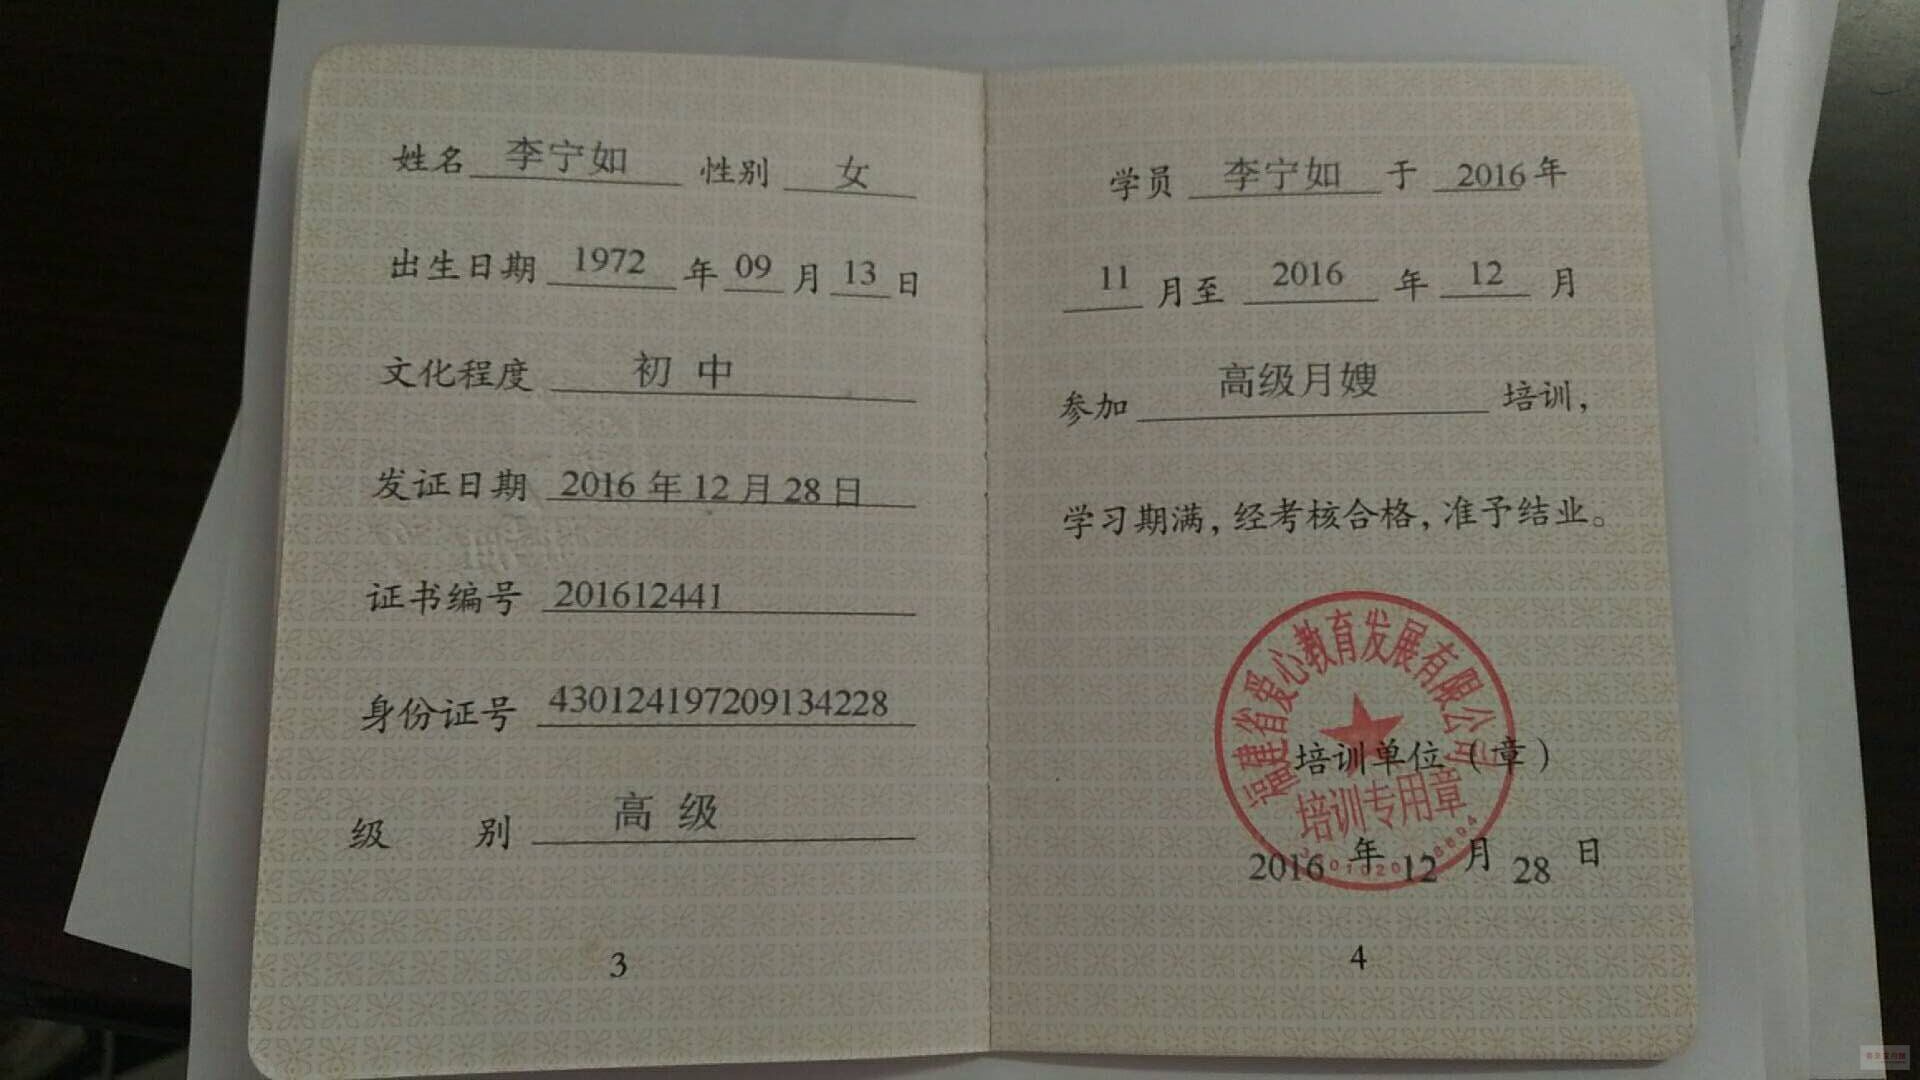 姓名 李宁如 性别 女
出生日期 1972 年 09 月 13 日
文化程度 初中
发证日期 2016年12月28日
证书编号 201612441
身份证号 430124197209134228
级 别 高级
3
学员 李宁如 于 2016 年
11 月至 2016 年 12 月
参加 高级月嫂 培训，
学习期满，经考核合格，准予结业。
福建省爱心教育发展有限公司
培训单位（章）
培训专用章
2016 年 12 月 28 日
4